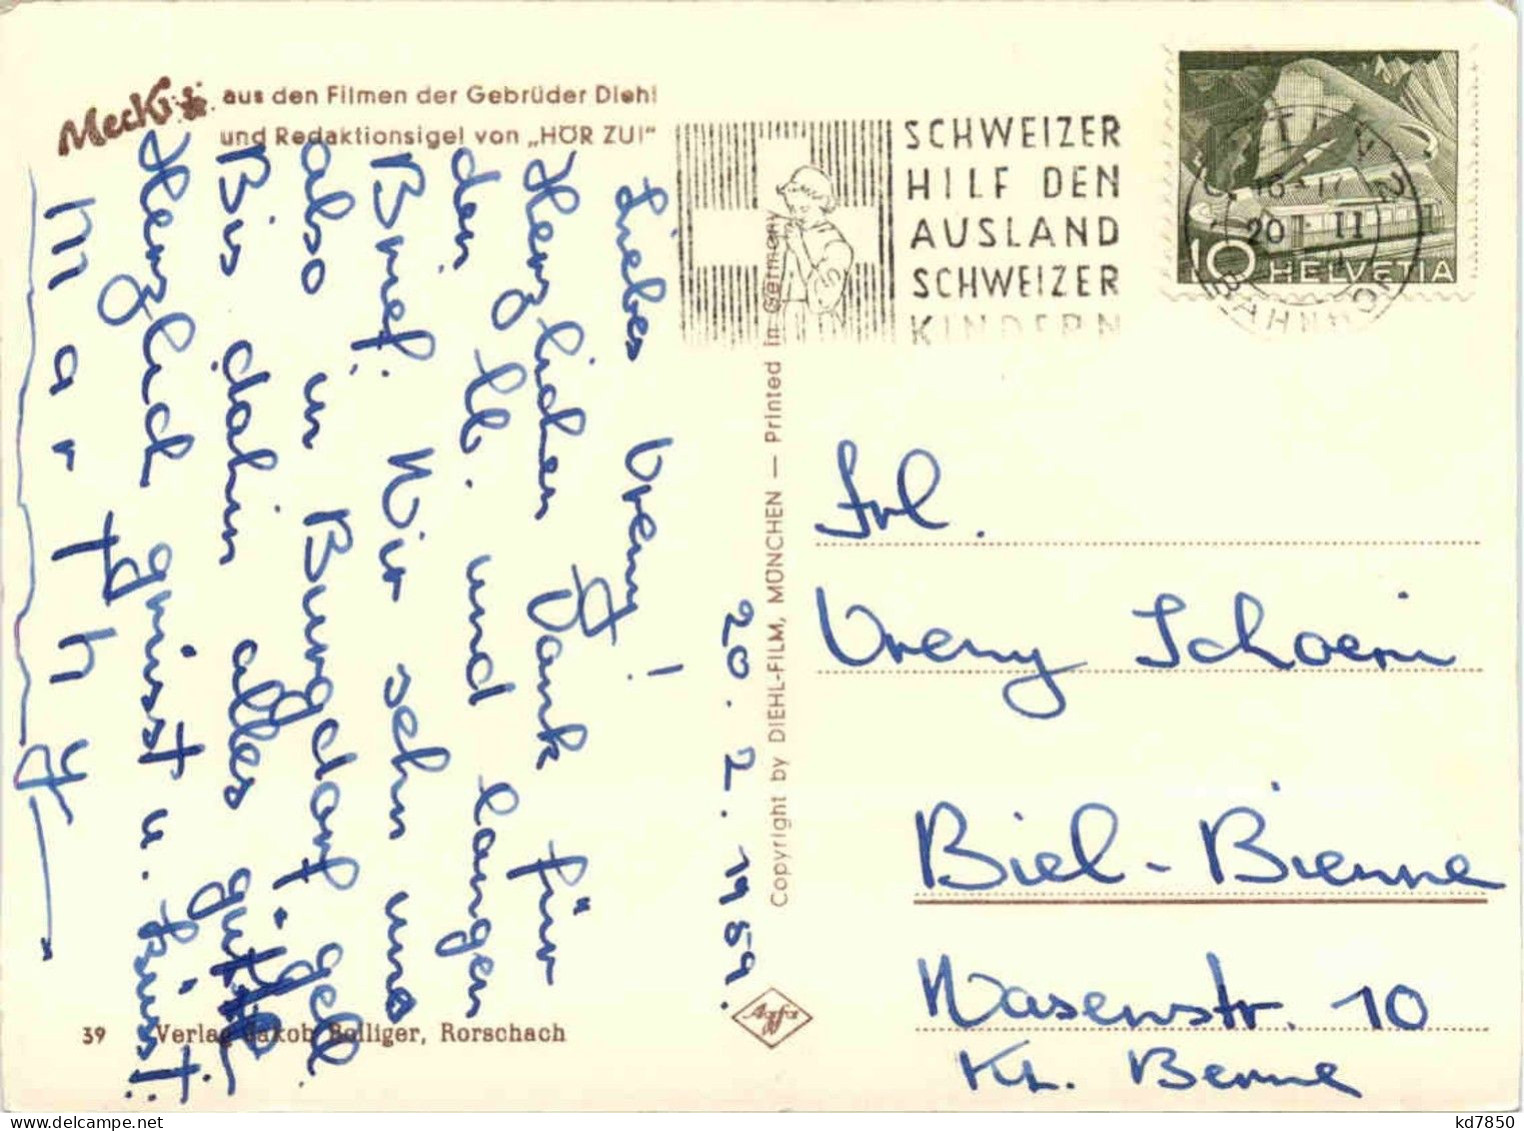 Mecki aus den Filmen der Gebrüder Diehl
und Redaktionsigel von „HÖR ZU!"
SCHWEIZER
HILF DEN
AUSLAND
SCHWEIZER
KINDERN
16-17
20 II
2
BAHNHOF
10 HELVETIA
Liebes Vreny!
Herzlichen Dank für
den lb. und langen
Brief. Wir sehn uns
also in Burgdorf gell
Bis dahin alles gute
Herzlich grüsst u. küsst
Marthy
20. 2. 1959.
Copyright by DIEHL-FILM, MÜNCHEN — Printed in Germany
Frl.
Vreny Schoeni
Biel-Bienne
Wasenstr. 10
Kt. Berne
Agfa
39 Verlag Jakob Bolliger, Rorschach
kd7850